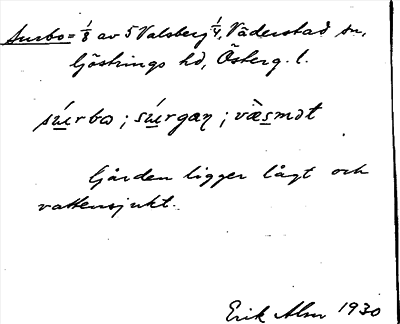 Surbo = 1/8 av 5 Valsberg 1/4, Väderstad sn,
Göstrings hd, Österg. l.
sú̲rbɷ ; sú̲rgaɳ ; væ̀s̲mət
Gården ligger lågt och
vattensjukt.
Erik Alm 1930